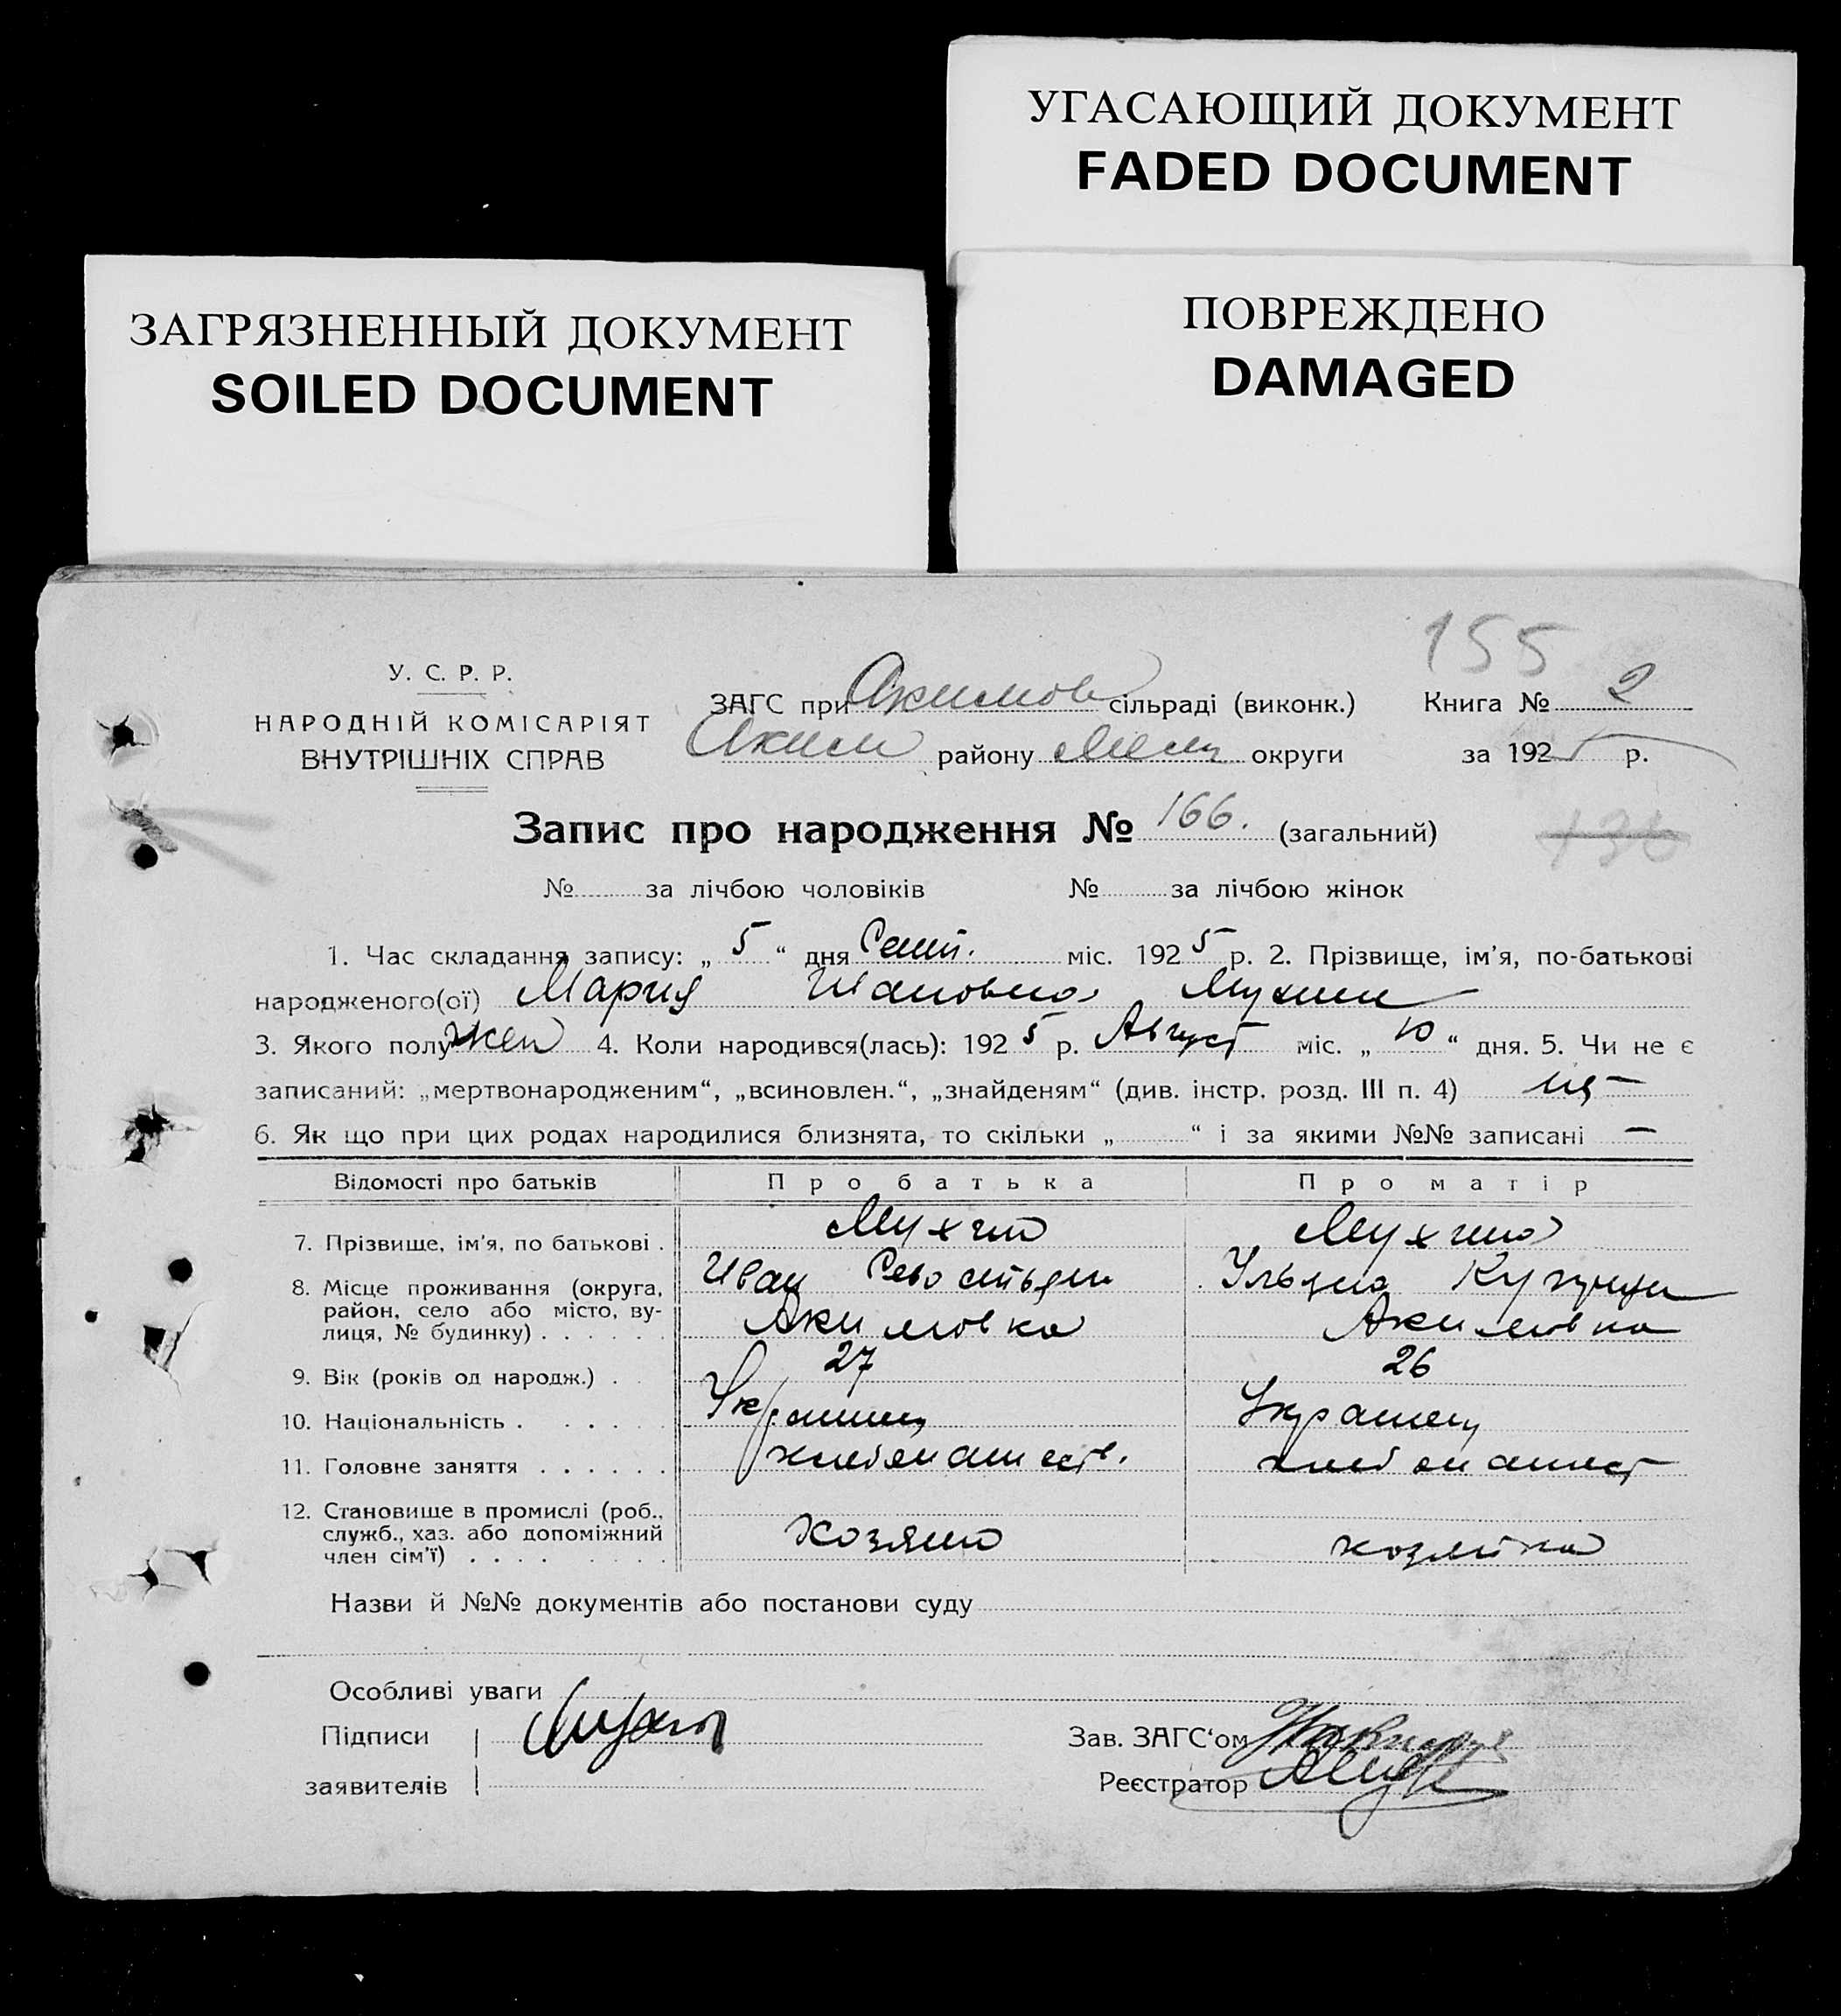 УГАСАЮЩИЙ ДОКУМЕНТ
FADED DOCUMENT
ЗАГРЯЗНЕННЫЙ ДОКУМЕНТ
SOILED DOCUMENT
ПОВРЕЖДЕНО
DAMAGED
155
У. С. Р. Р.
НАРОДНІЙ КОМІСАРІЯТ
ВНУТРІШНІХ СПРАВ
ЗАГС при Акимов сільраді (виконк.) Книга № 2
Аким району Мел округи за 1925 р.
Запис про народження № 166. (загальний) 136
№ за лічбою чоловіків № за лічбою жінок
1. Час складання запису: „ 5 “ дня Сент. міс. 1925 р. 2. Прізвище, ім'я, по-батькові
народженого(ої) Мария Ивановна Мухин
3. Якого полу жен 4. Коли народився(лась): 1925 р. Август міс. „ 10 “ дня. 5. Чи не є
записаний: „мертвонародженим“, „всиновлен.“, „знайденям“ (див. інстр. розд. III п. 4)
6. Як що при цих родах народилися близнята, то скільки „ “ і за якими №№ записані —
Відомості про батьків Про батька Про матір
7. Прізвище, ім'я, по батькові . Мухин Мухина
Иван Ульяна
8. Місце проживання (округа, район, село або місто, вулиця, № будинку) . . . . . . Акимовка Акимовка
9. Вік (років од народж.) . . 27 26
10. Національність . . . . . . Украинец Украинец
11. Головне заняття . . . . . . хлебопашеств. хлебопашест
12. Становище в промислі (роб., служб., хаз. або допоміжний член сім'ї) . . . . . . . . хозяин хозяйка
Назви й №№ документів або постанови суду
Особливі уваги
Підписи Мухин Зав. ЗАГС'ом
заявителів Реєстратор